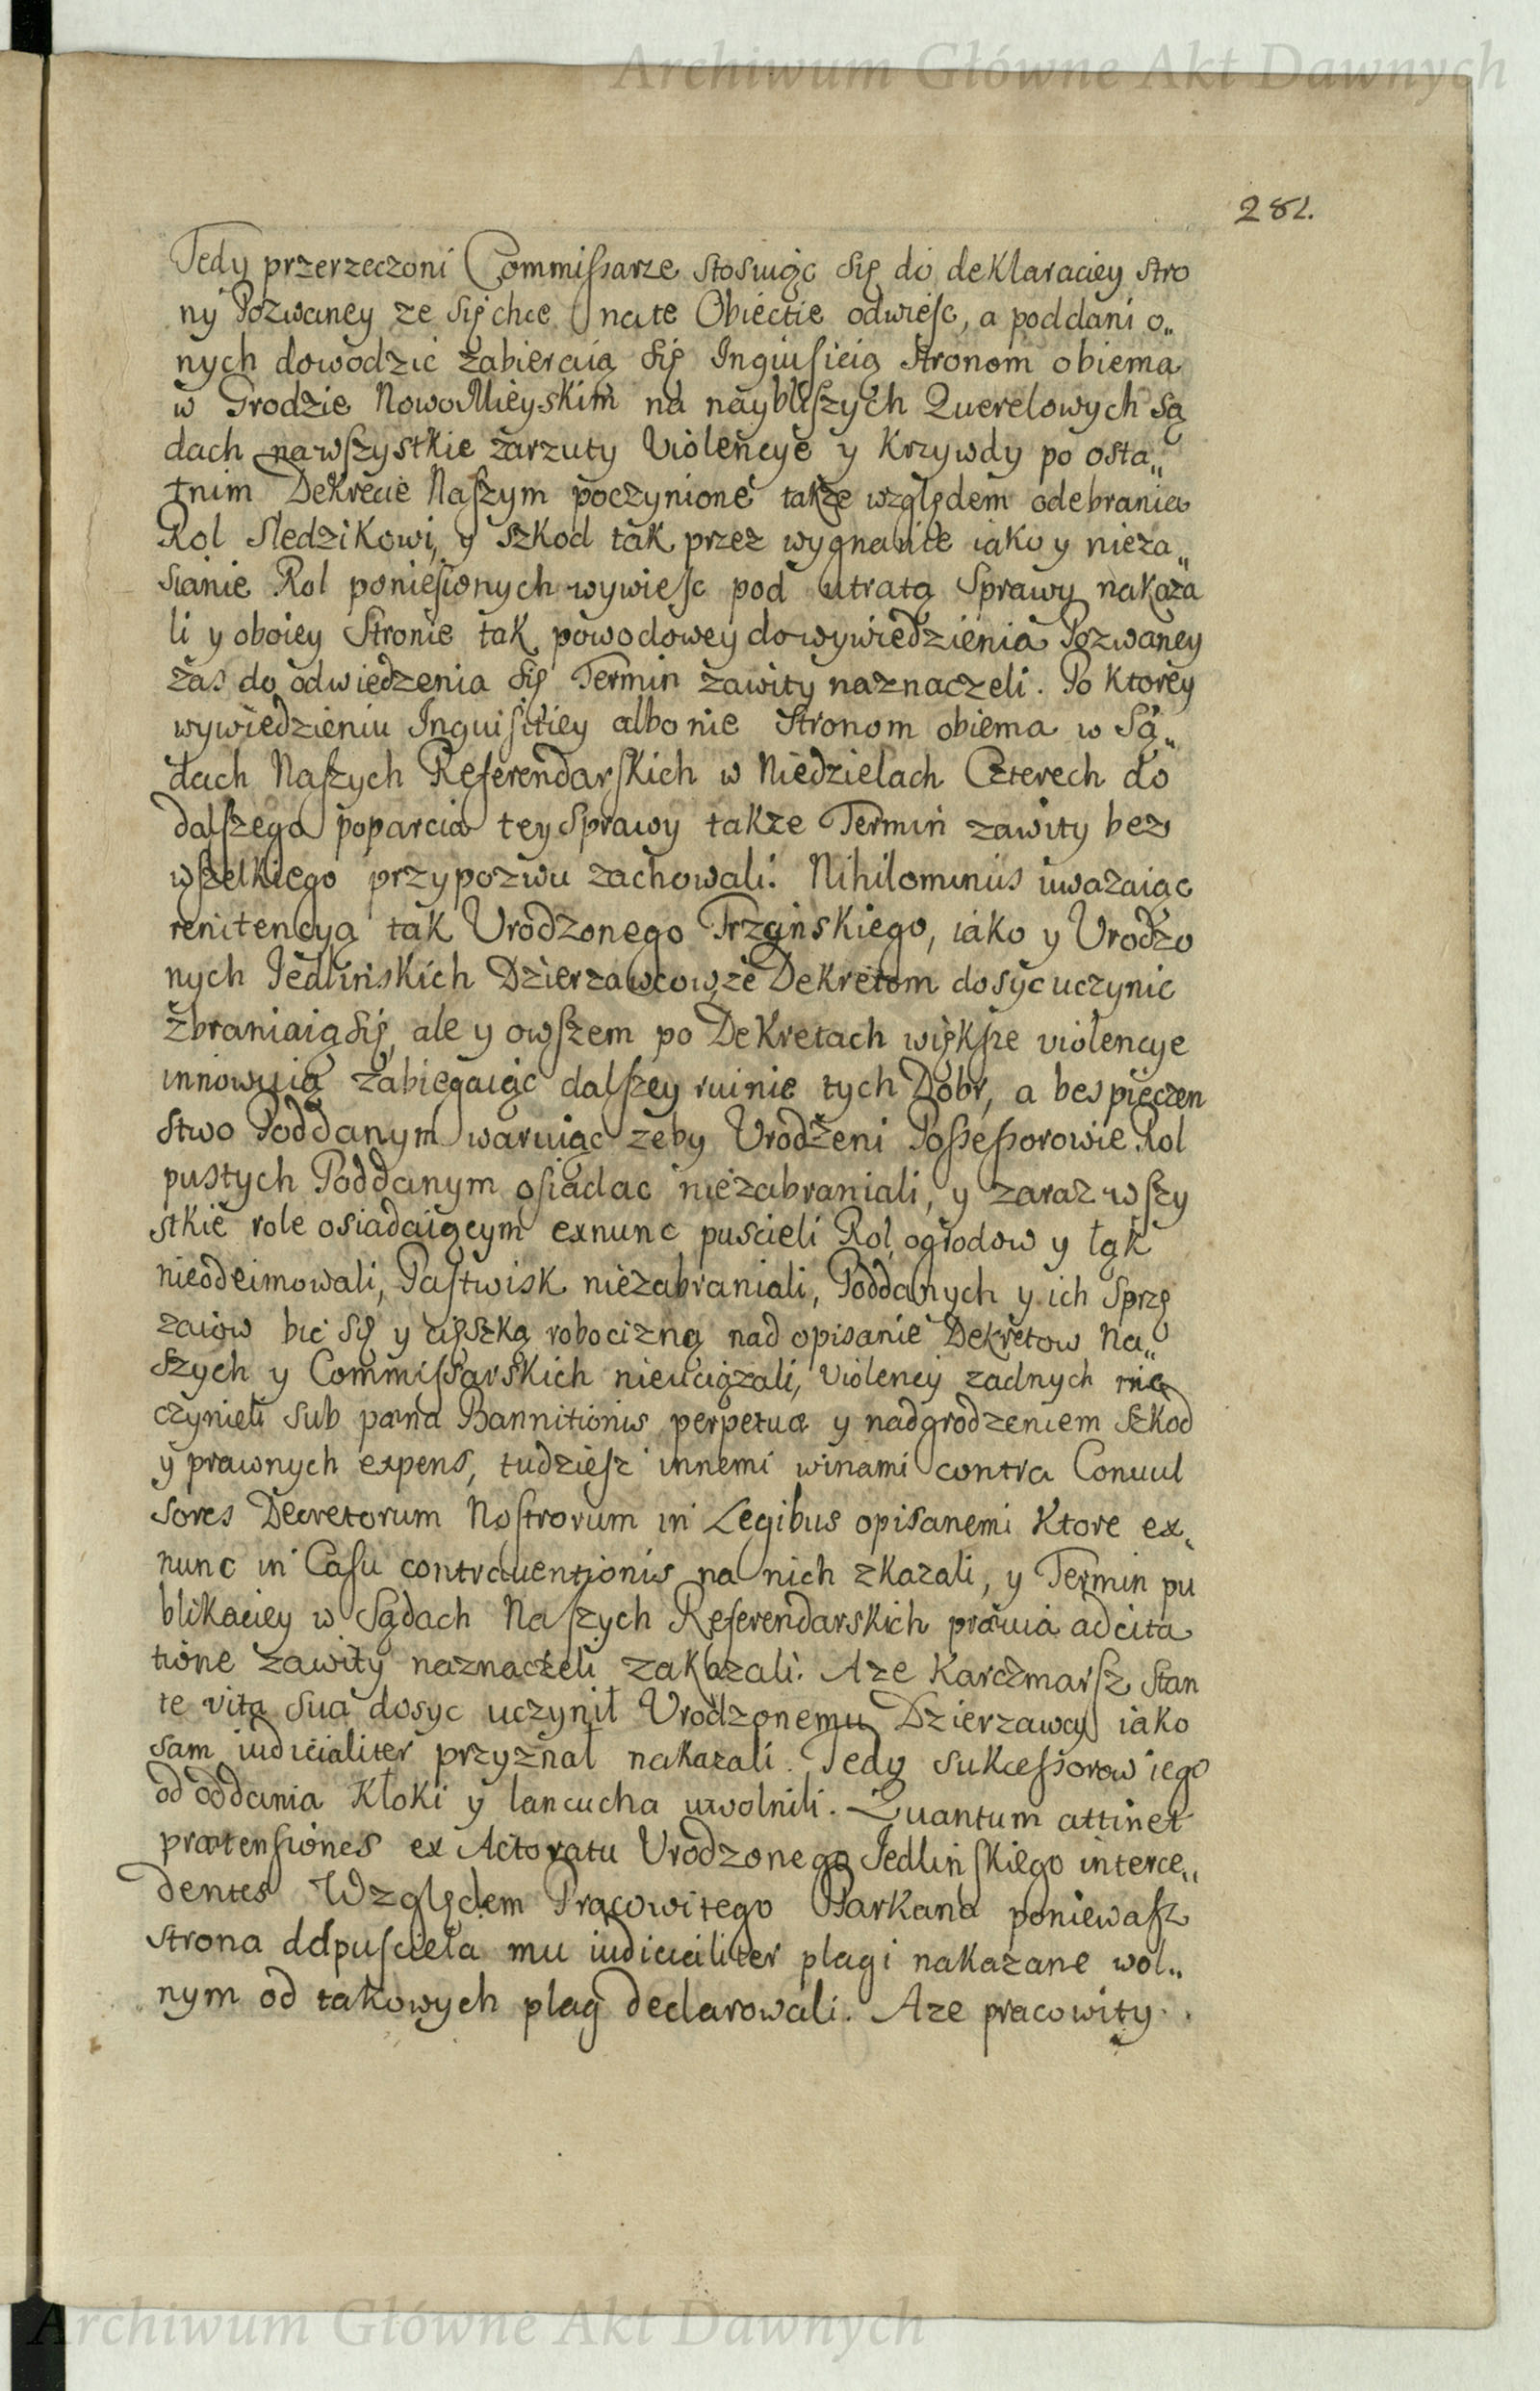 Archiwum Główne Akt Dawnych
281.
Tedy przerzeczoni Commissarze stosuiąc się do deklaraciey stro
ny Pozwaney ze się chce na te Obiectie odwieśc, a poddani o„
nych dowodzić zabieraią się Inquisicią stronom obiema
w Grodzie NowoMieyskim na naybliszych Querelowych Są
dach na wszystkie zarzuty Violencye y Krzywdy po osta„
tnim Dekrecie Naszym poczynione także względem odebrania
Rol Sledzikowi, y szkod tak przez wygnanie iako y nieza„
sianie Rol poniesionych wywieśc pod utratą Sprawy nakaza
li y oboiey Stronie tak powodowey do wywiedzienia Pozwaney
zas do odwiedzenia się Termin zawity naznaczeli. Po Ktorey
wywiedzieniu Inquisitiey albo nie stronom obiema w Są„
dach Naszych Referendarskich w Niedzielach Czterech do
dalszego poparcia tey Sprawy takze Termin zawity bez
wszelkiego przypozwu zachowali. Nihilominus uwazaiąc
renitencyą tak Urodzonego Trzcinskiego, iako y Urodzo
nych Jedlinskich Dzierzawcow, ze Dekretom dosyc uczynic
zbraniaią się, ale y owszem po Dekretach większe violencye
innowuią zabiegaiąc dalszey ruinie tych Dobr, a bespieczen
stwo Poddanym waruiąc zeby Urodzeni Possessorowie Rol
pustych Poddanym osiadac niezabraniali, y zaraz wszy
stkie role osiadaiącym exnunc puscieli Rol, ogrodow y łąk
nieodeimowali, Pastwisk niezabraniali, Poddanych y ich Sprzę
zaiow bić się y cięszką robocizną nad opisanie Dekretow Na„
szych y Commissarskich nieuciązali, violency zadnych nie
czynieli sub pœna Bannitionis perpetuæ y nadgrodzeniem szkod
y prawnych expens, tudziesz innemi winami contra Convul
sores Decretorum Nostrorum in Legibus opisanemi Ktore ex„
nunc in Casu contraventionis na nich zkazali, y Termin pu
blikaciey w Sądach Naszych Referendarskich prævia adcita
tione zawity naznaczeli zakazali. Aze Karczmarsz stan
te vita sua dosyc uczynił Urodzonemu Dzierzawcy iako
sam iudicialiter przyznał nakazali. Tedy sukcessorow iego
od oddania Kłoki y lancucha uwolnili. Quantum attinet
prætensiones ex Actoratu Urodzonego Jedlinskiego interce„
dentes Względem Pracowitego Parkana poniewasz
strona odpusciela mu iudicialiter plagi nakazane wol„
nym od takowych plag declarowali. Aze pracowity
Archiwum Główne Akt Dawnych